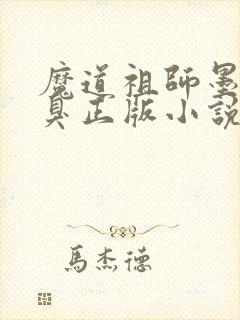 魔道祖師墨
臭正版小說
馬杰德